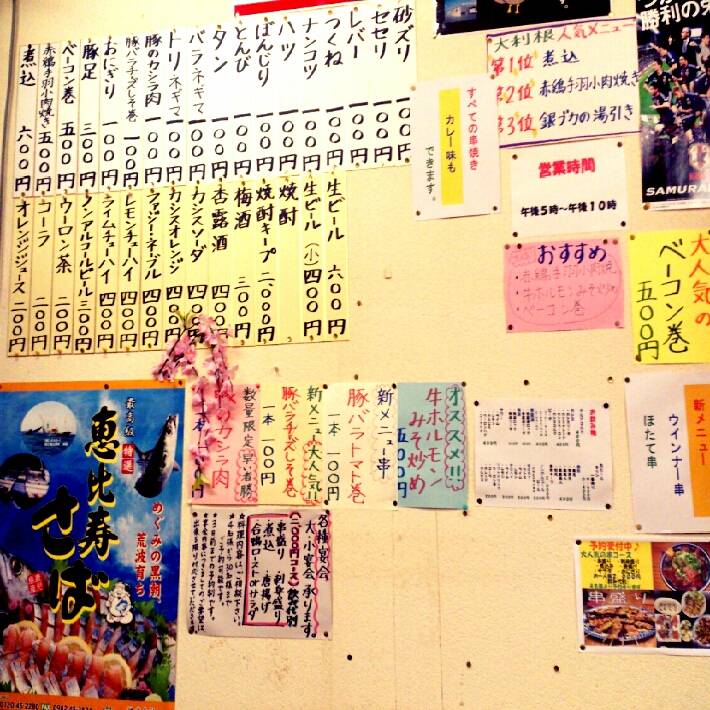 砂ズリ 一〇〇円
セセリ 一〇〇円
レバー 一〇〇円
つくね 一〇〇円
ナンコツ 一〇〇円
ハツ 一〇〇円
ぼんじり 一〇〇円
とんび 一〇〇円
タン 一〇〇円
バラネギマ 一〇〇円
トリネギマ 一〇〇円
豚のカシラ肉 一〇〇円
豚バラチーズしそ巻 一〇〇円
おにぎり 一〇〇円
豚足 三〇〇円
ベーコン巻 五〇〇円
赤鶏手羽小肉焼き 五〇〇円
煮込 六〇〇円
生ビール 六〇〇円
生ビール(小) 四〇〇円
焼酎
焼酎キープ 二、〇〇〇円
梅酒 三〇〇円
杏露酒 四〇〇円
カシスソーダ 四〇〇円
カシスオレンジ 四〇〇円
ファジーネーブル 四〇〇円
レモンチューハイ 四〇〇円
ライムチューハイ 四〇〇円
ノンアルコールビール 三〇〇円
ウーロン茶 二〇〇円
コーラ 二〇〇円
オレンジジュース 二〇〇円
すべての串焼き
カレー味も
できます。
大利根 人気メニュー
第1位 煮込
第2位 赤鶏手羽小肉焼き
第3位 銀ブカの湯引き
営業時間
午後5時〜午後10時
勝利の
SAMURA
おすすめ
・赤鶏手羽小肉焼
・牛ホルモンみそ炒め
・ベーコン巻
大人気の
ベーコン巻
五〇〇円
新メニュー
ウインナー串
ほたて串
オススメ!!
牛ホルモン
みそ炒め
五〇〇円
新メニュー串
豚バラトマト巻
一本 一〇〇円
新メニュー大人気!!
豚バラチーズしそ巻
一本 一〇〇円
数量限定 早い者勝
豚のカシラ肉
一本 一〇〇円
各種宴会
大・小宴会承ります。
飲代別
串盛り
・刺身盛り
・煮込
・唐揚げ
・合鴨ローストorサラダ
★料理内容はご相談下さい。
予約受付中♪
串盛り
最高級
特選
恵比寿さば
めぐみの黒潮
荒波育ち
0120-45-2280